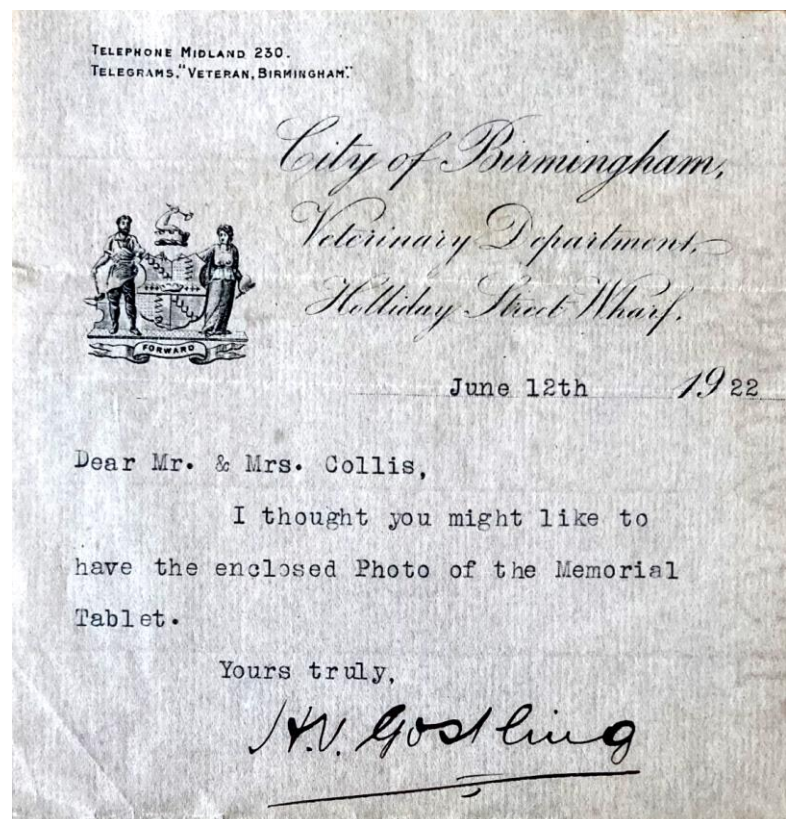 TELEPHONE MIDLAND 230.
TELEGRAMS, "VETERAN, BIRMINGHAM".
City of Birmingham,
Veterinary Department,
Holliday Street Wharf.
FORWARD
June 12th 1922
Dear Mr. & Mrs. Collis,
I thought you might like to
have the enclosed Photo of the Memorial
Tablet.
Yours truly,
H.V. Gostling